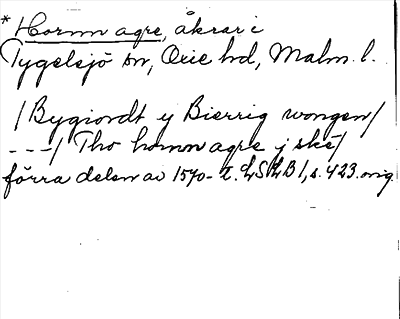 * Hornn agre, åkrar i
Tygelsjö sn, Oxie hd, Malm. l.
/ Bygiordt y Bierrig wongen/
---/ Tho hornn agre j ske/
förra delen av 1570-t. LSLB 1, s. 423. orig